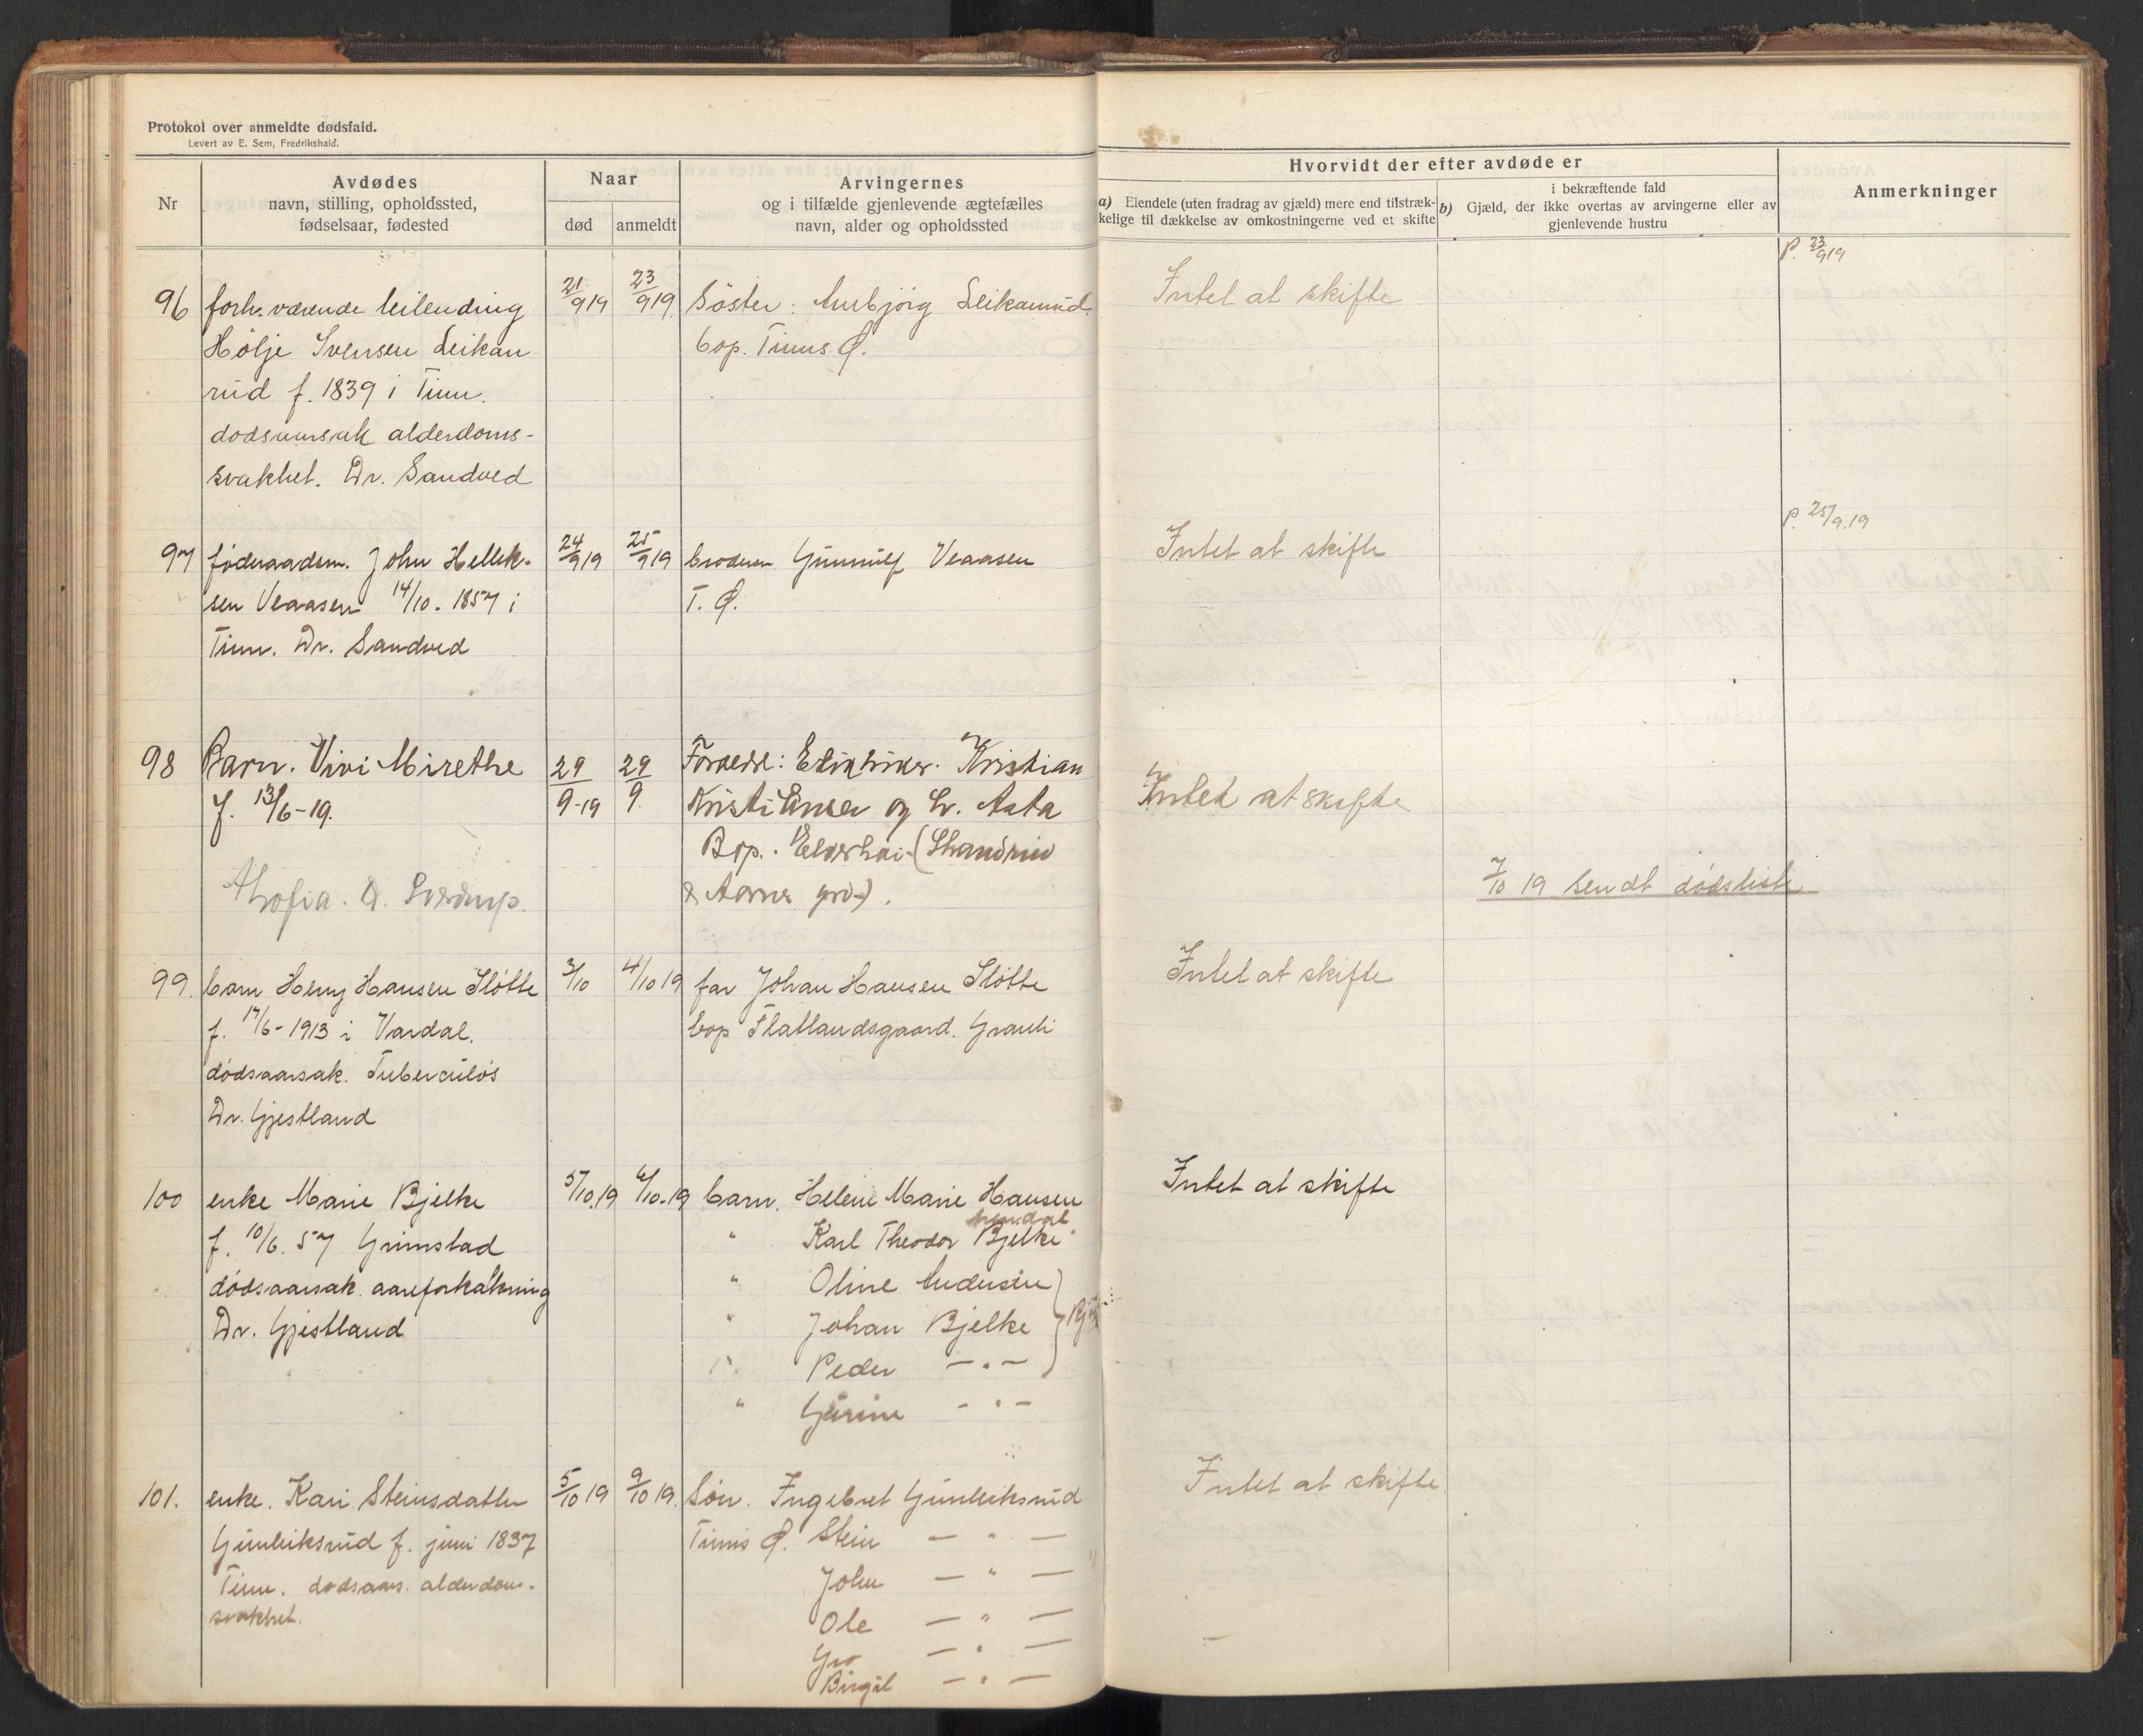 Protokol over anmeldte dødsfald.
Levert av E. Sem, Fredrikshald.
Nr
Avdødes
navn, stilling, opholdssted,
fødselsaar, fødested
Naar
død
anmeldt
Arvingernes
og i tilfælde gjenlevende ægtefælles
navn, alder og opholdssted
Hvorvidt der efter avdøde er
a) Eiendele (uten fradrag av gjæld) mere end tilstræk-
kelige til dækkelse av omkostningerne ved et skifte
i bekræftende fald
b) Gjæld, der ikke overtas av arvingerne eller av
gjenlevende hustru
Anmerkninger
P. 23/9 19
96 forh. værende leilending 21/9 19 23/9 19. Søster: Aubjørg Leikanrud Intet at skifte
Hølje Svensen Leikan bop. Tinns Ø.
rud f. 1839 i Tinn.
dødsaarsak alderdoms-
svakhet. Dr. Sandved
P. 25/9.19
97 føderaadsm. John Hellek- 24/9 19 25/9 19 broderen Gunnulf Veaasen Intet at skifte
sen Veaasen 14/10. 1857 i T. Ø.
Tinn. Dr. Sandved
98 Barn. Vivi Mirethe 29/9-19 29/9. Foreldre: Kristian Intet at skifte
f. 13/6-19. Kristiansen og Asta
Bop.
& Aarnes
7/10 19 sendt dødsliste
99. barn Henry Hansen Sløtte 3/10 4/10 19 far Johan Hansen Sløtte Intet at skifte
f. 17/6-1913 i Vardal. bop Flatlandsgaard.
dødsaarsak. Tuberculøs
Dr. Gjestland
100 enke Marie Bjelke 5/10.19 6/10.19 barn. Helene Marie Hansen Intet at skifte
f. 10/6. 57 Grimstad " Karl Theodor Bjelke
dødsaarsak aareforkalkning " Oline Andersen
Dr. Gjestland " Johan Bjelke
" Peder — " —
" Gurine — " —
101. enke. Kari Steinsdatter 5/10 19 9/10 19. Søn. Ingebret Gunleiksrud Intet at skifte
Gunleiksrud f. juni 1837 Tinns Ø. Stein — " —
Tinn. dødsaars. alderdoms- John — " —
svakhet. Ole — " —
Gro — " —
Birgit — " —